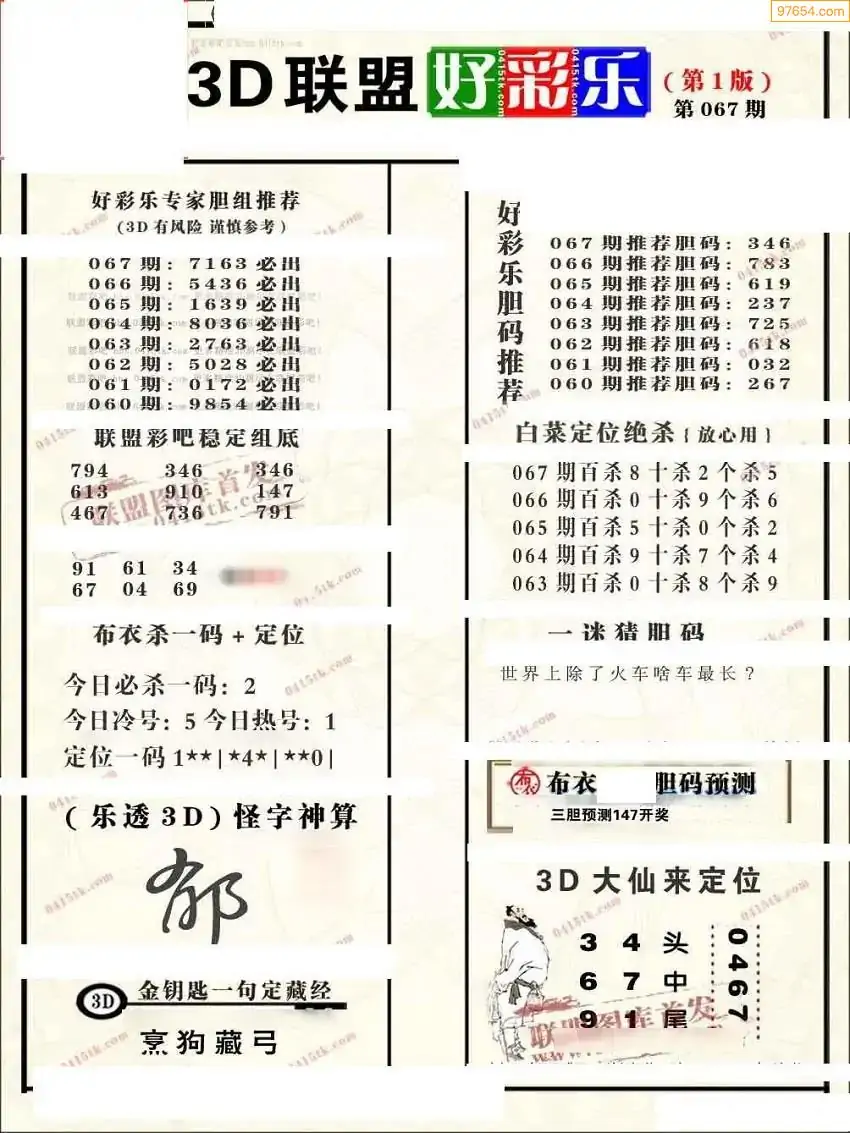 97654.com
3D联盟好彩乐(第1版)
第067期
好彩乐专家胆组推荐
(3D有风险 谨慎参考)
067期: 7163必出
066期: 5436必出
065期: 1639必出
064期: 8036必出
063期: 2763必出
062期: 5028必出
061期: 0172必出
060期: 9854必出
联盟彩吧稳定组底
794 346 346
613 910 147
467 736 791
91 61 34
67 04 69
布衣杀一码+定位
今日必杀一码: 2
今日冷号: 5 今日热号: 1
定位一码1**|*4*|**0|
(乐透3D)怪字神算
郁
3D 金钥匙一句定藏经
烹狗藏弓
好彩乐胆码推荐
067期推荐胆码: 346
066期推荐胆码: 783
065期推荐胆码: 619
064期推荐胆码: 237
063期推荐胆码: 725
062期推荐胆码: 618
061期推荐胆码: 032
060期推荐胆码: 267
白菜定位绝杀{放心用}
067期百杀8十杀2个杀5
066期百杀0十杀9个杀6
065期百杀5十杀0个杀2
064期百杀9十杀7个杀4
063期百杀0十杀8个杀9
一迷猜胆码
世界上除了火车啥车最长?
布衣 胆码预测
三胆预测147开奖
3D大仙来定位
3 4 头
6 7 中
9 1 尾
0467
联盟图库首发
0415tk.com